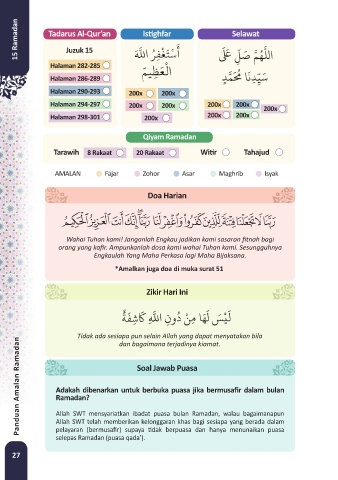 15 Ramadan
Tadarus Al-Qur'an
Istighfar
Selawat
Juzuk 15
Halaman 282-285
Halaman 286-289
Halaman 290-293
Halaman 294-297
Halaman 298-301
أَسْتَغْفِرُ اللَّهَ
الْعَظِيْمَ
200x 200x
200x 200x
200x
اللَّهُمَّ صَلِّ عَلَى
سَيِّدِنَا مُحَمَّدٍ
200x 200x
200x
200x 200x
Qiyam Ramadan
Tarawih 8 Rakaat 20 Rakaat Witir Tahajud
AMALAN Fajar Zohor Asar Maghrib Isyak
Doa Harian
رَبَّنَا لَا تَجْعَلْنَا فِتْنَةً لِّلَّذِينَ كَفَرُوا۟ وَٱغْفِرْ لَنَا رَبَّنَآ إِنَّكَ أَنتَ ٱلْعَزِيزُ ٱلْحَكِيمُ
Wahai Tuhan kami! Janganlah Engkau jadikan kami sasaran fitnah bagi
orang yang kafir. Ampunkanlah dosa kami wahai Tuhan kami. Sesungguhnya
Engkaulah Yang Maha Perkasa lagi Maha Bijaksana.
*Amalkan juga doa di muka surat 51
Zikir Hari Ini
لَيْسَ لَهَا مِنْ دُونِ اللَّهِ كَاشِفَةٌ
Tidak ada sesiapa pun selain Allah yang dapat menyatakan bila
dan bagaimana terjadinya kiamat.
Soal Jawab Puasa
Adakah dibenarkan untuk berbuka puasa jika bermusafir dalam bulan
Ramadan?
Allah SWT mensyariatkan ibadat puasa bulan Ramadan, walau bagaimanapun
Allah SWT telah memberikan kelonggaran khas bagi sesiapa yang berada dalam
pelayaran (bermusafir) supaya tidak berpuasa dan hanya menunaikan puasa
selepas Ramadan (puasa qada').
Panduan Amalan Ramadan
27